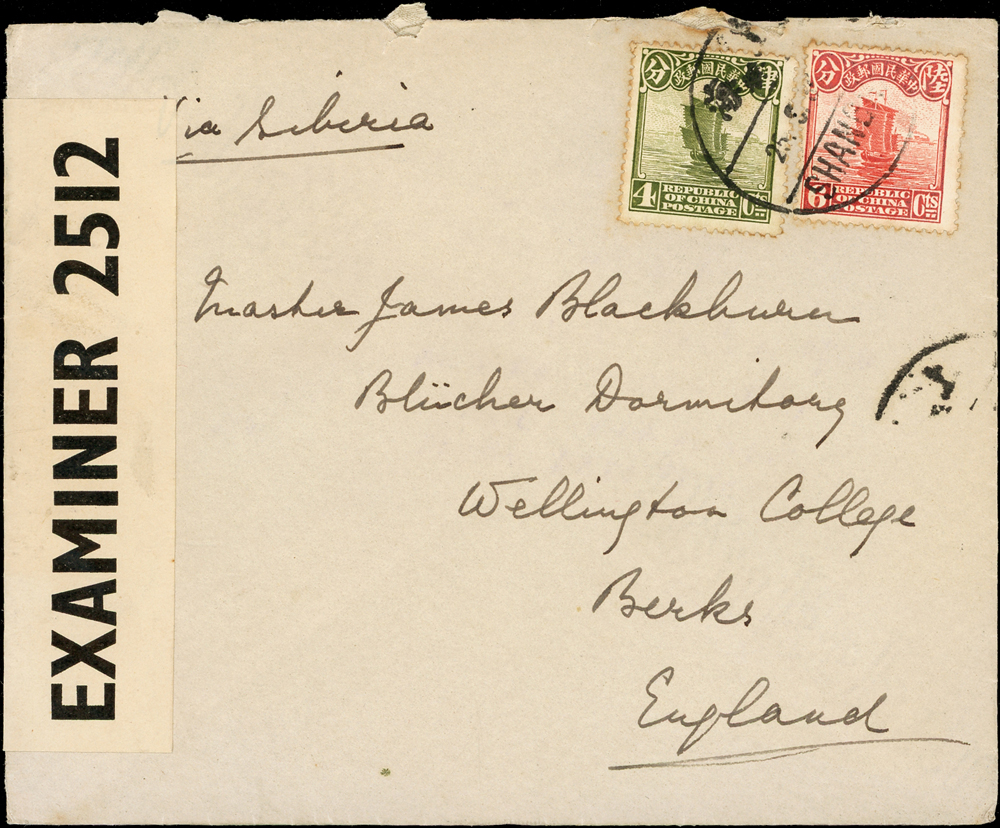 Via Siberia
分 中華民國郵政
4 REPUBLIC OF CHINA POSTAGE Cts
分 中華民國郵政 陸
6 REPUBLIC OF CHINA POSTAGE Cts
SHANG
EXAMINER 2512
Master James Blackburn
Blücher Dormitory
Wellington College
Berks
England